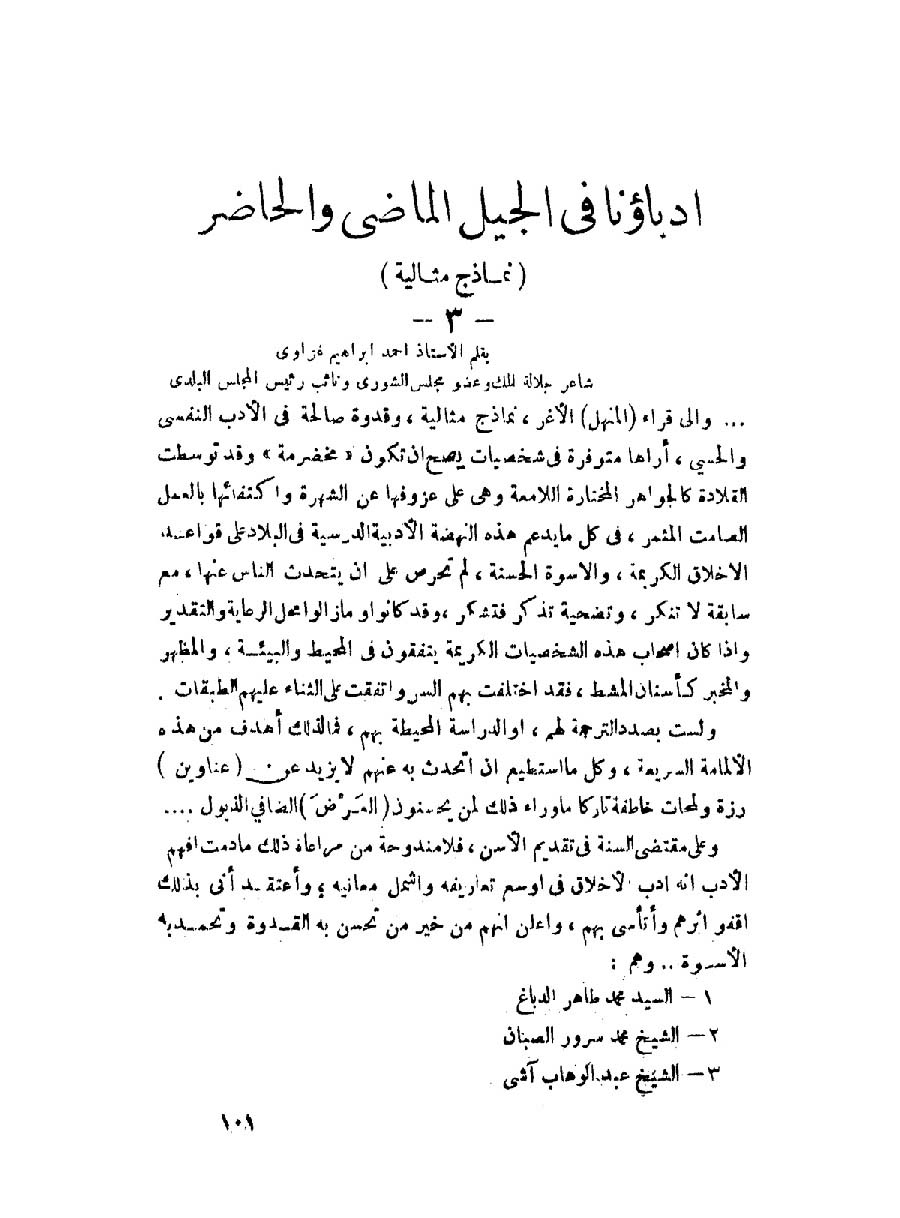 ادباؤنا في الجيل الماضى والحاضر
( نمـاذج مثـالية )
– ٣ –
بقلم الاستاذ احمد ابراهيم غزاوى
شاعر جلالة الملك وعضو مجلس الشورى ونائب رئيس المجلس البلدى
... والى قراء (المنهل) الأغر ، نماذج مثالية ، وقدوة صالحة فى الأدب النفسى
والحسي ، أراها متوفرة فى شخصيات يصح ان تكون « مخضرمة » وقد توسطت
القلادة كالجواهر المختارة اللامعة وهى على عزوفها عن الشهرة واكتفائها بالعمل
الصامت المثمر ، فى كل مايدعم هذه النهضة الأدبية الدرسية فى البلاد على قواعـد
الاخلاق الكريمة ، والاسوة الحسنة ، لم تحرص على ان يتحدث الناس عنها ، مع
سابقة لا تنكر ، وتضحية تذكر فتشكر ، وقد كانوا وما زالوا محل الرعاية والتقدير
واذا كان اصحاب هذه الشخصيات الكريمة يتفقون فى المحيط والبيئـة ، والمظهر
والمخبر كـأسنان المشط ، فقد اختلفت بهم السن واتفقت على الثناء عليهم الطبقات .
ولست بصدد الترجمة لهم ، او الدراسة المحيطة بهم ، فما لذلك أهدف من هذه
الألمامة السريعة ، وكل ما استطيع ان اتحدث به عنهم لا يزيد عن ( عناوين )
رزة ولمحات خاطفة تاركا ماوراء ذلك لمن يحسنون ( العَرْضَ ) الضافي الذيول ....
وعلى مقتضى السنة فى تقديم الأسن ، فلا مندوحة من مراعاة ذلك مادمت افهم
الأدب انه ادب الأخلاق فى اوسع تعاريفه واشمل معانيه ، وأعتقـد أنى بذلك
اقفو اثرهم وأتأسى بهم ، واعلن انهم من خير من تحسن به القـدوة وتحمـد به
الأسـوة .. وهم :
١ – السيد محمد طاهر الدباغ
٢ – الشيخ محمد سرور الصبان
٣ – الشيخ عبد الوهاب آشى
١٠١